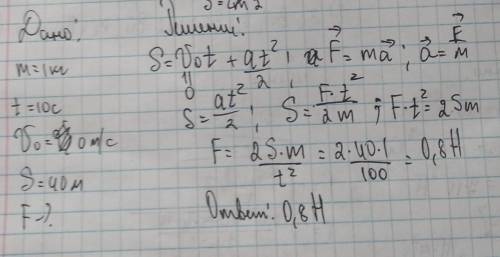 S=2m2
Дано:
m=1кг
t=10c
V₀=0 м/с
S=40м
F-?
Решение:
S=V₀t + at²/2, a F⃗=ma⃗; a⃗=F⃗/m
0
S=at²/2; S=F·t²/2m; F·t²=2Sm
F= 2S·m/t² = 2·40·1/100 = 0,8H
Ответ: 0,8H